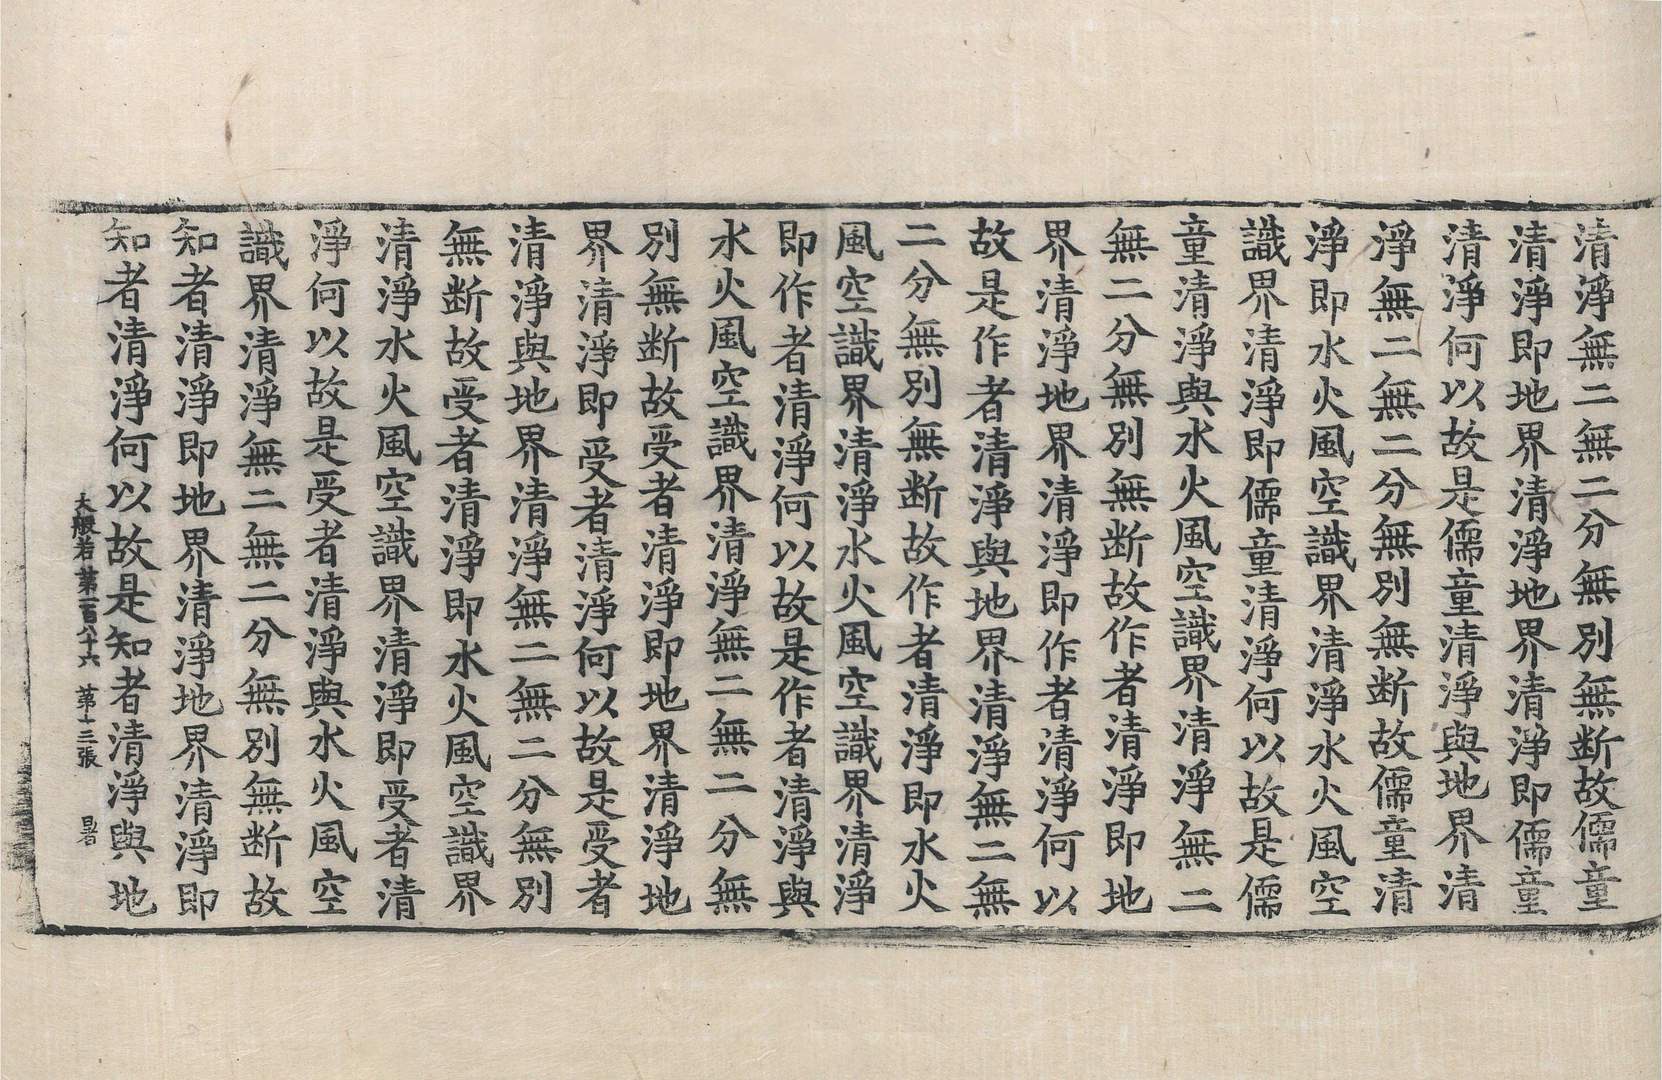 清淨無二無二分無別無断故儒童
清淨即地界清淨地界清淨即儒童
清淨何以故是儒童清淨與地界清
淨無二無二分無別無断故儒童清
淨即水火風空識界清淨水火風空
識界清淨即儒童清淨何以故是儒
童清淨與水火風空識界清淨無二
無二分無別無断故作者清淨即地
界清淨地界清淨即作者清淨何以
故是作者清淨與地界清淨無二無
二分無別無断故作者清淨即水火
風空識界清淨水火風空識界清淨
即作者清淨何以故是作者清淨與
水火風空識界清淨無二無二分無
別無断故受者清淨即地界清淨地
界清淨即受者清淨何以故是受者
清淨與地界清淨無二無二分無別
無断故受者清淨即水火風空識界
清淨水火風空識界清淨即受者清
淨何以故是受者清淨與水火風空
識界清淨無二無二分無別無断故
知者清淨即地界清淨地界清淨即
知者清淨何以故是知者清淨與地
大般若第一百八十六 第十三張 暑